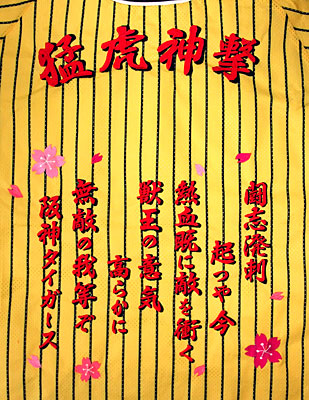 猛虎神撃
闘志溌剌
起つや今
熱血既に敵を衝く
獣王の意気
高らかに
無敵の我等ぞ
阪神タイガース